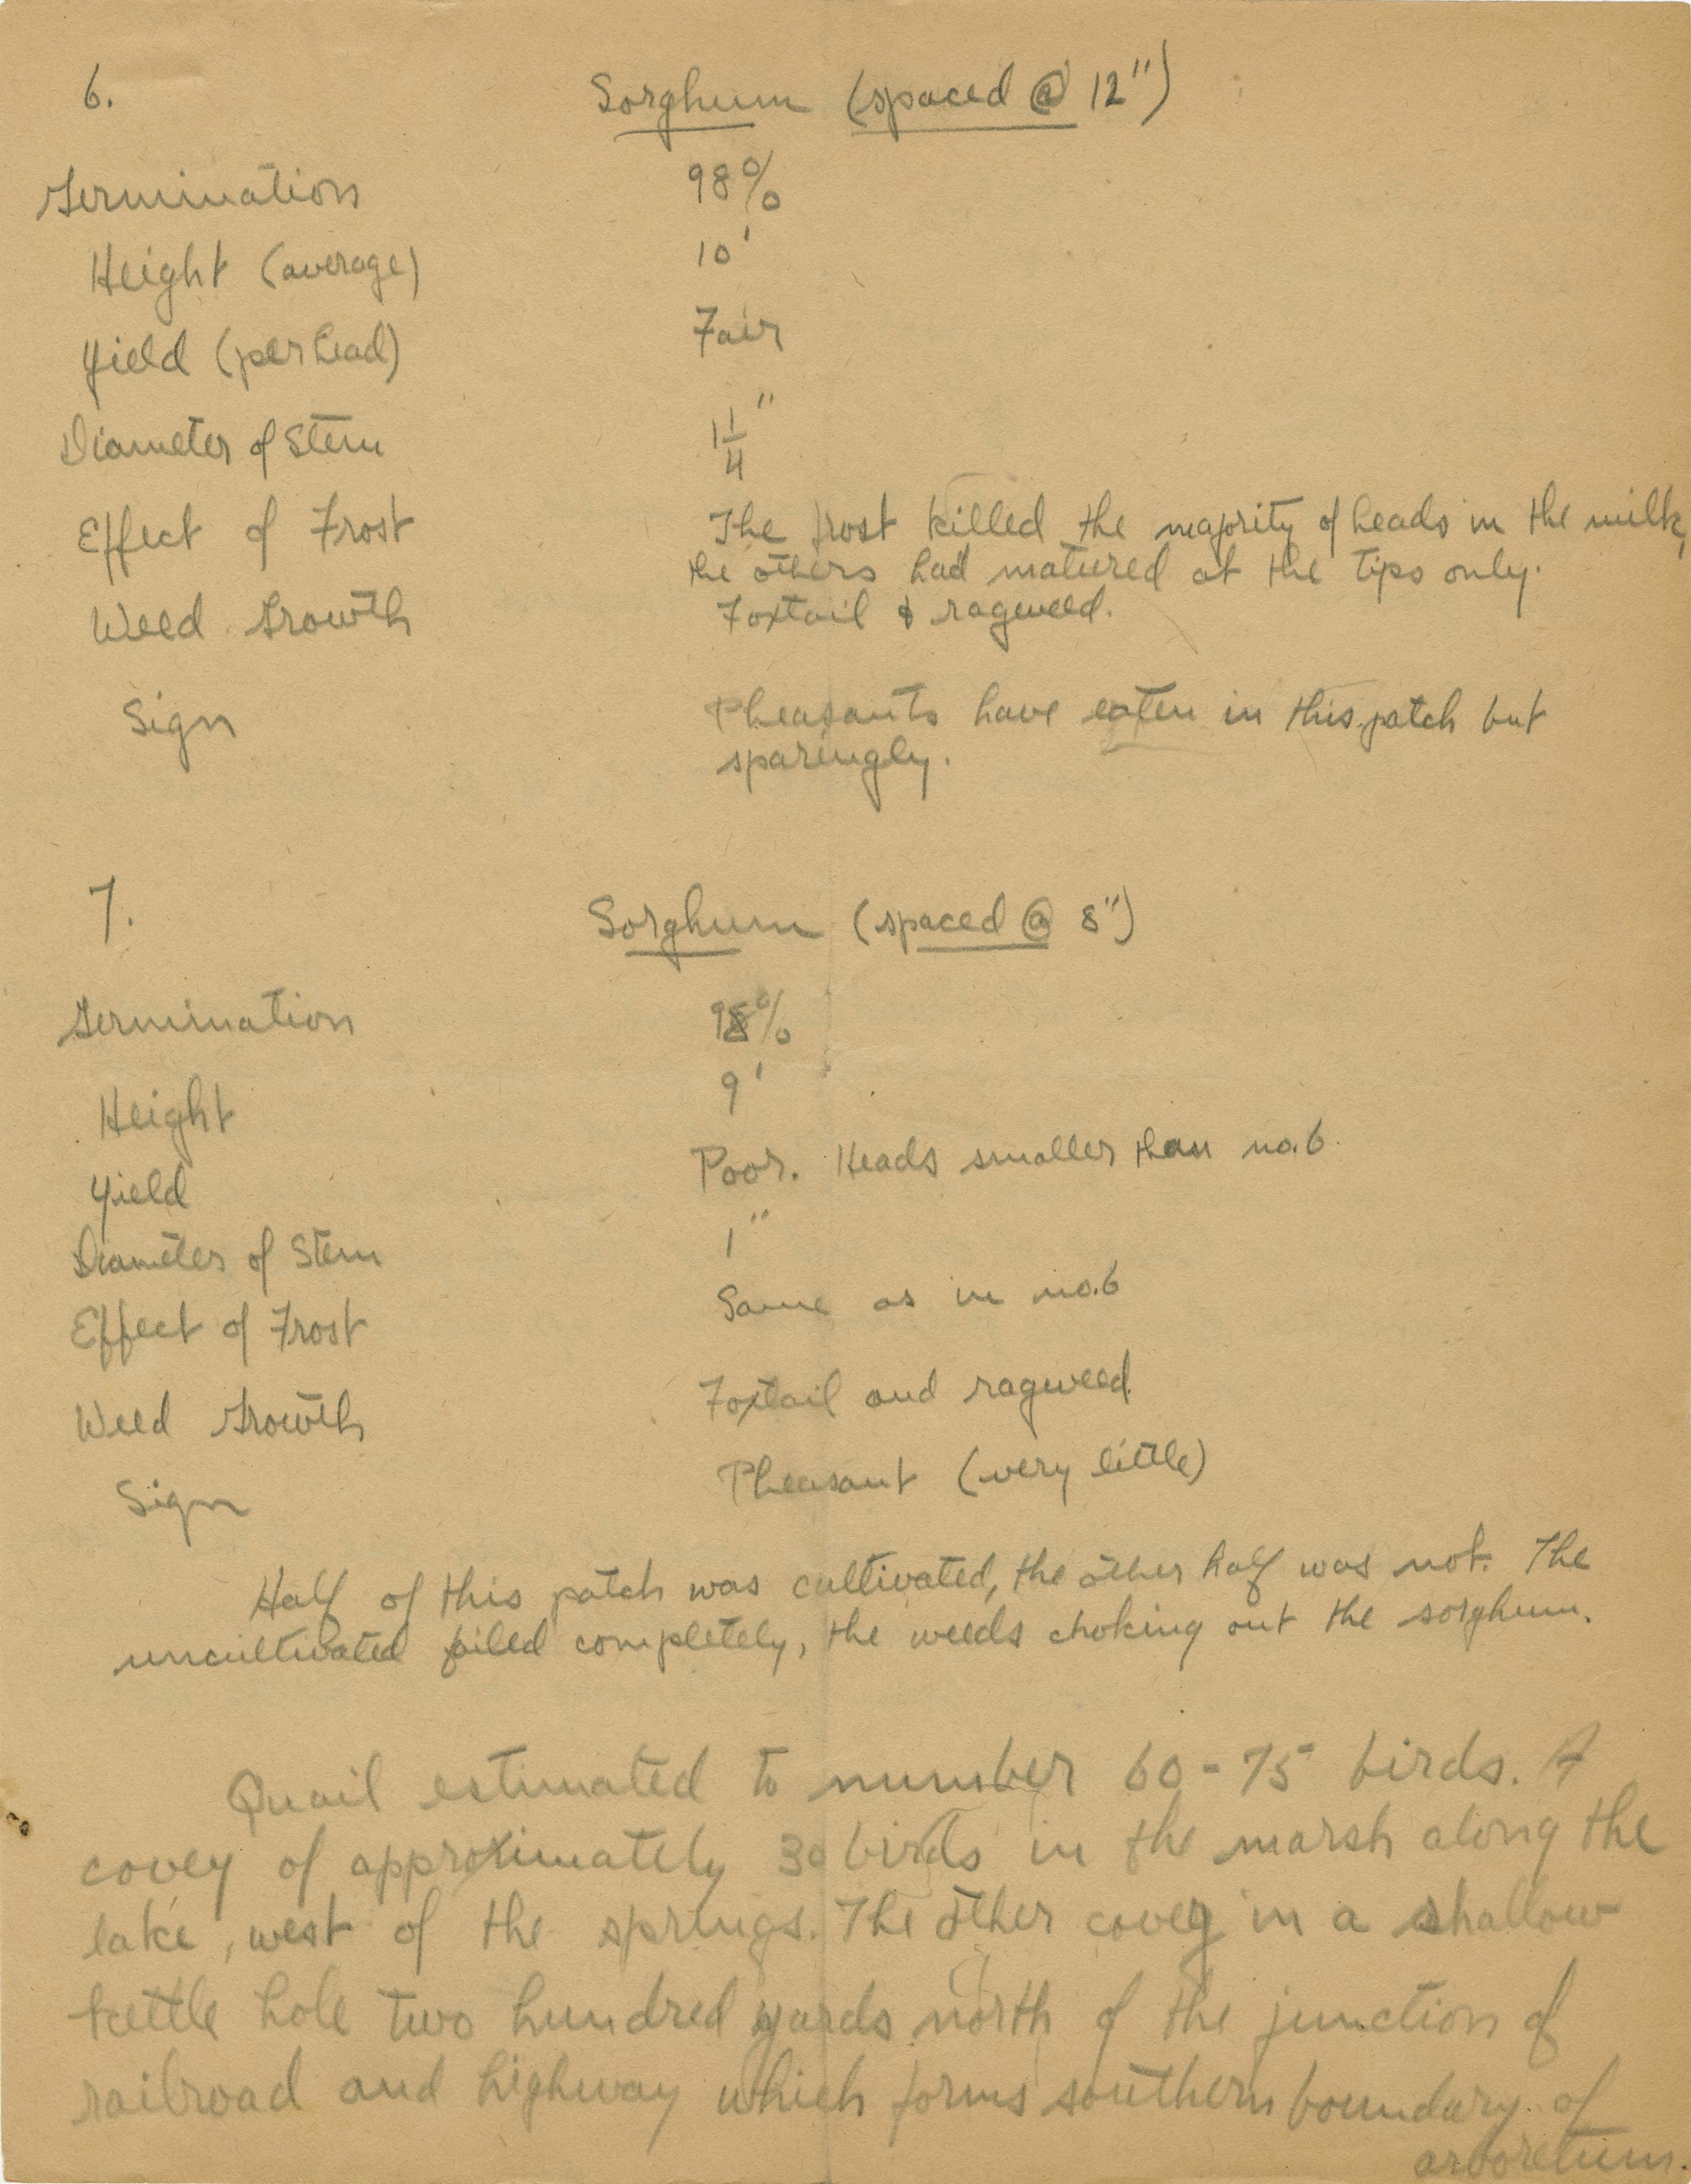 6. Sorghum (spaced @ 12")
Germination 98%
Height (average) 10'
Yield (per head) Fair
Diameter of Stem 1 1/4"
Effect of Frost The frost killed the majority of heads in the milk,
the others had matured at the tips only.
Weed Growth Foxtail & ragweed.
Sign Pheasants have eaten in this patch but
sparingly.
7. Sorghum (spaced @ 8")
Germination 98%
Height 9'
Yield Poor. Heads smaller than no.6.
Diameter of Stem 1"
Effect of Frost Same as in no.6
Weed Growth Foxtail and ragweed.
Sign Pheasant (very little)
Half of this patch was cultivated, the other half was not. The
uncultivated failed completely, the weeds choking out the sorghum.
Quail estimated to number 60-75 birds. A
covey of approximately 30 birds in the marsh along the
lake, west of the springs. The other covey in a shallow
kettle hole two hundred yards north of the junction of
railroad and highway which forms southern boundary of
arboretum.